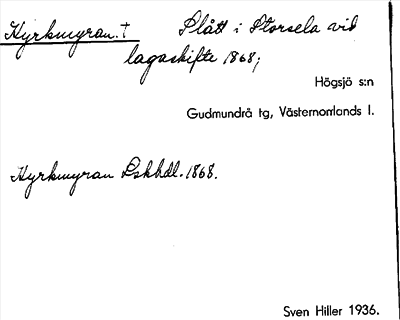 Kyrkmyran. † Slått i Storsela vid
lagaskifte 1868;
Högsjö s:n
Gudmundrå tg, Västernorrlands l.
Kyrkmyran Lskhdl. 1868.
Sven Hiller 1936.